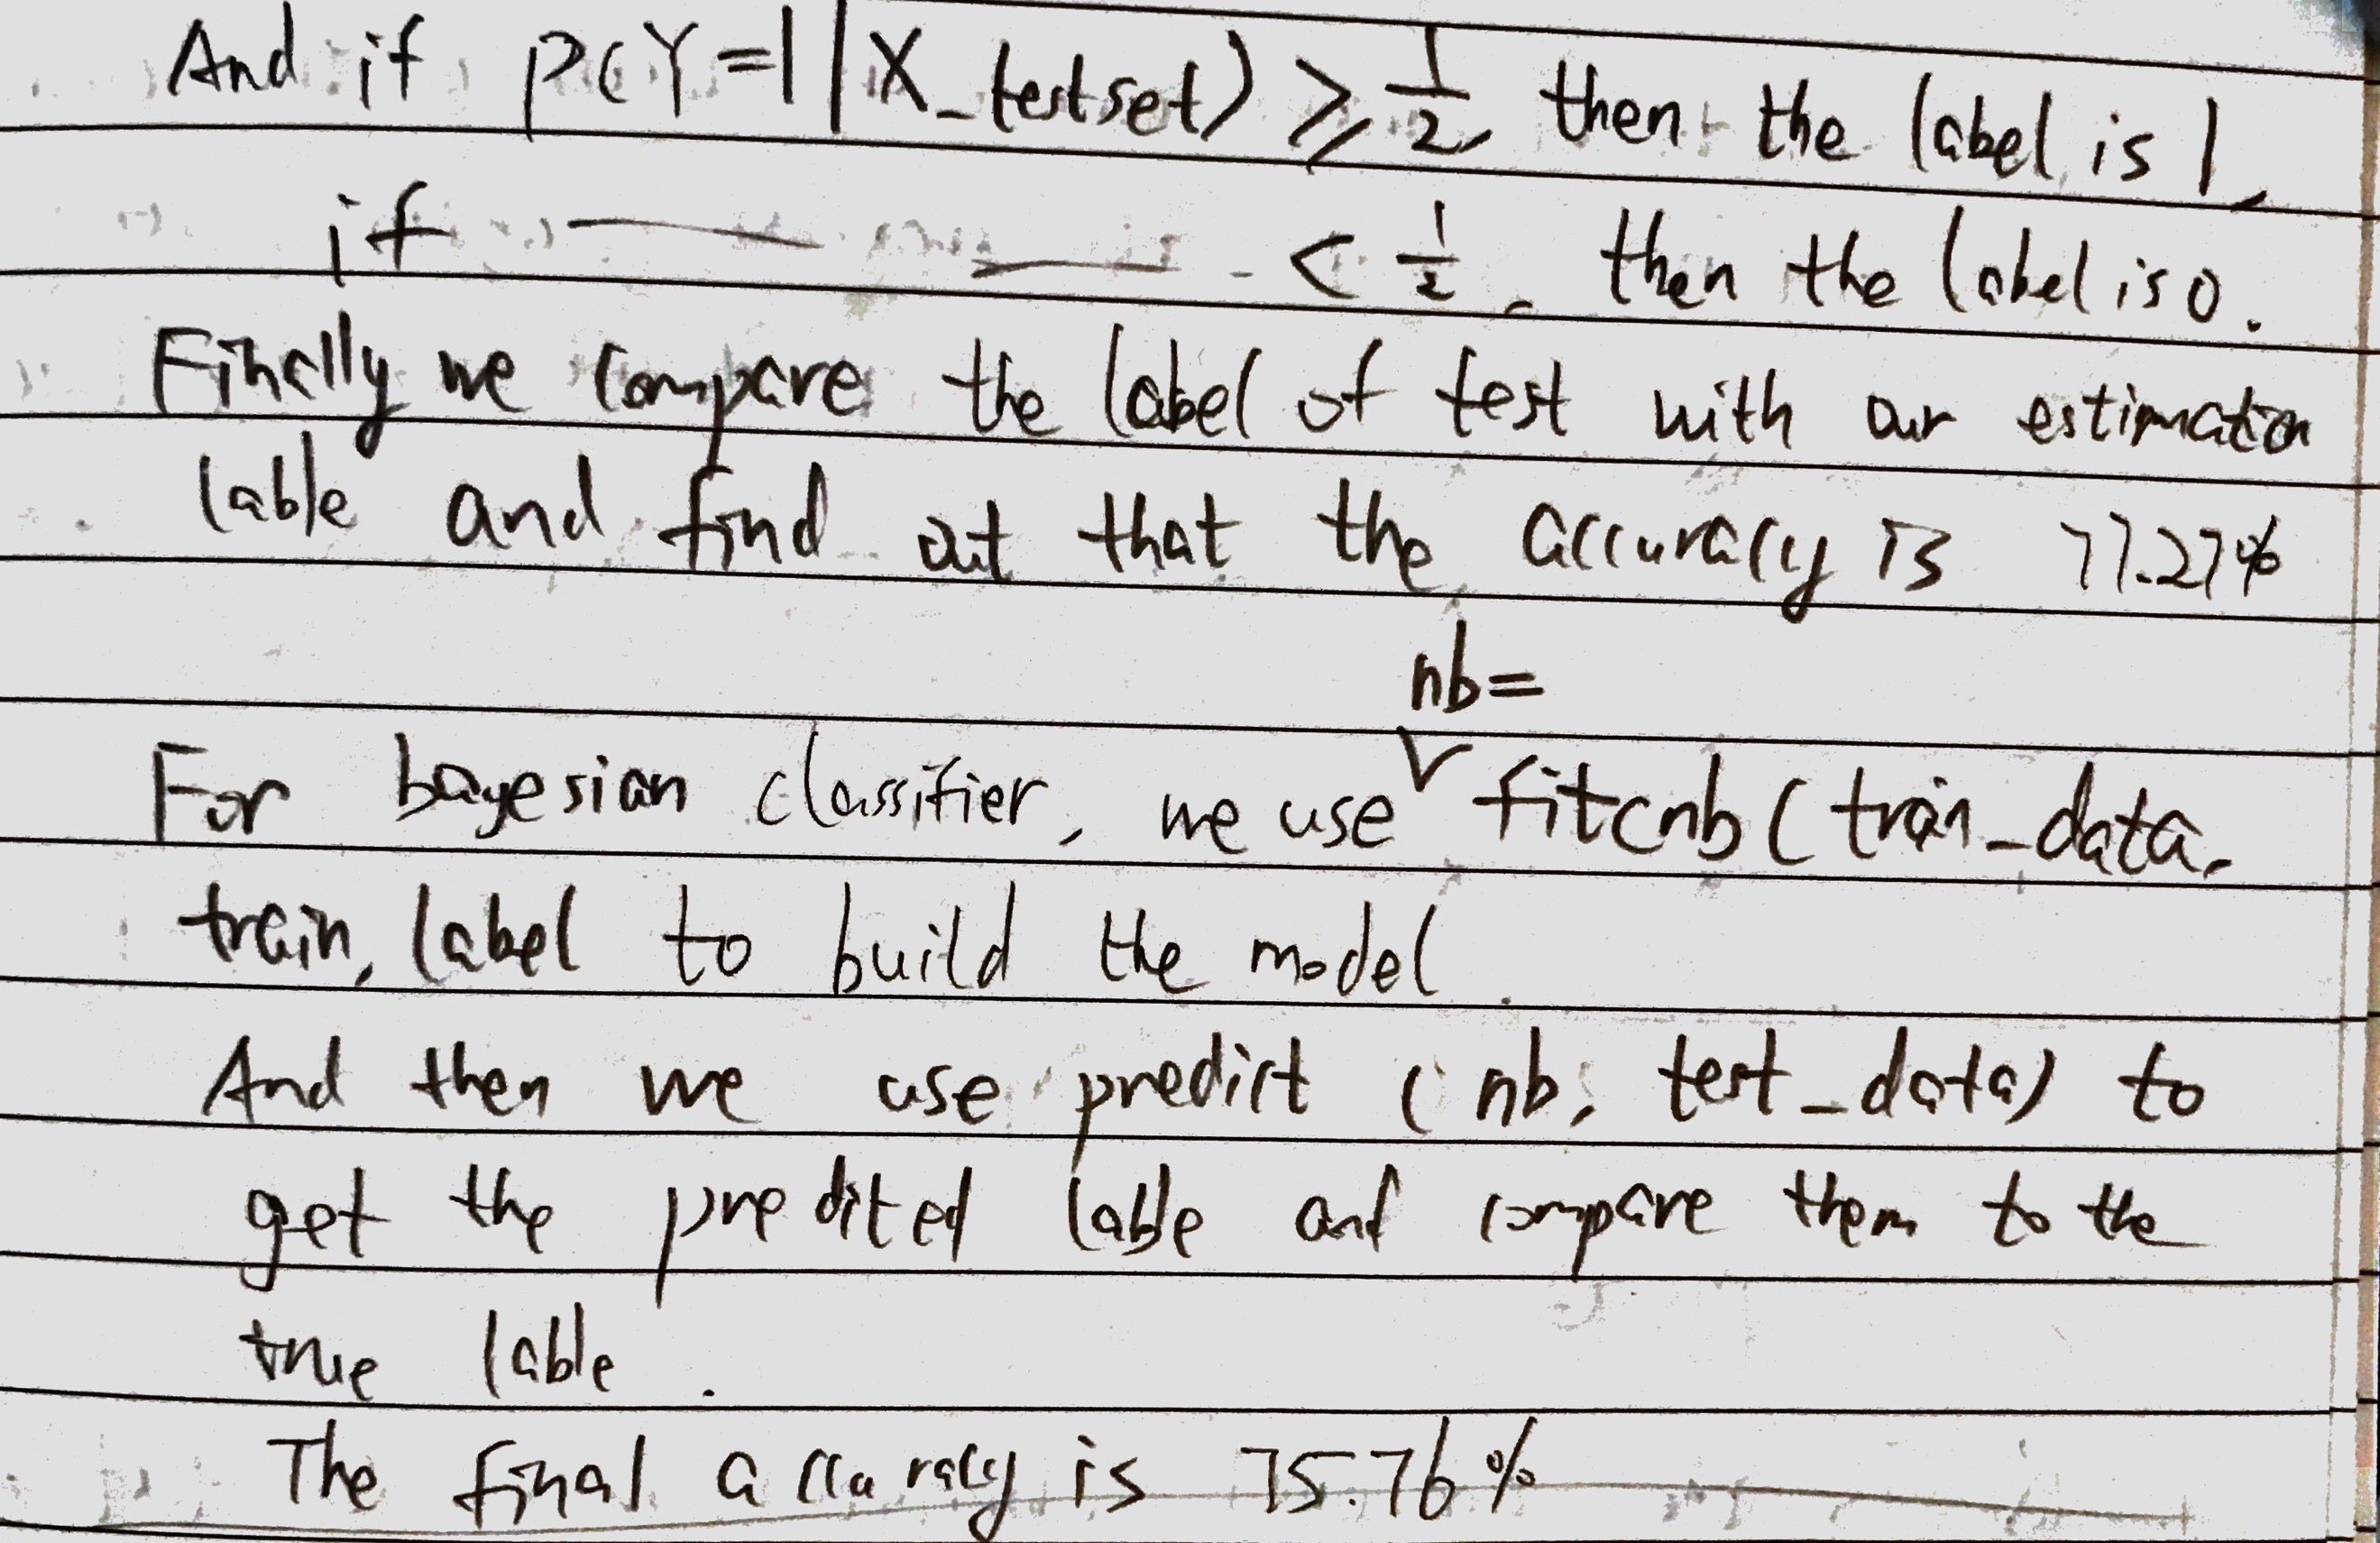 And if P(Y=1|X_testset) ≥ 1/2, then the label is 1,
if —— —— < 1/2, then the label is 0.
Finally we compare the label of test with our estimation
lable and find out that the accuracy is 77.27%
nb=
For bayesian classifier, we use ∨ fitcnb(train_data,
train, label to build the model.
And then we use predict (nb, test_data) to
get the predited lable and compare them to the
true lable.
The final accuracy is 75.76%